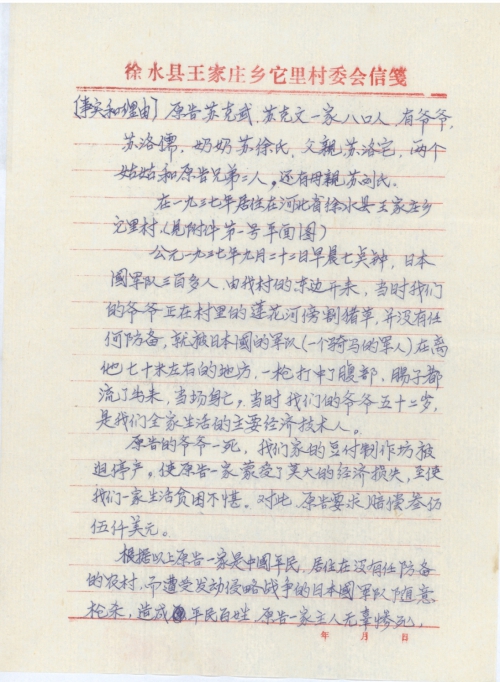 徐水县王家庄乡它里村委会信笺
〔事实和理由〕原告苏克武、苏克文一家八口人，有爷爷，
苏洛儒，奶奶苏徐氏，父親苏洛它，两个
姑姑和原告兄弟二人，还有母親苏刘氏。
在一九三七年居住在河北省徐水县王家庄乡
它里村（見附件第一号平面图）
公元一九三七年九月二十二日早晨七点钟，日本
國军队三百多人，由我村的东边开来，当时我们
的爷爷正在村里的莲花河傍割猪草，并没有任
何防备，就被日本國的军队（一个骑马的军人）在离
他七十米左右的地方，一枪打中了腹部，腸子都
流了出来，当场身亡，当时我们的爷爷五十二岁，
是我们全家生活的主要经济技术人。
原告的爷爷一死，我们家的豆付制作坊被
迫停产。使原告一家蒙受了莫大的经济损失，至使
我们一家生活贫困不堪。对此，原告要求赔偿叁佰
伍仟美元。
根据以上原告一家是中國平民，居住在没有任防备
的农村，而遭受发动侵略战争的日本國军队随意
枪杀，造成平民百姓，原告一家主人无辜惨死，
年 月 日